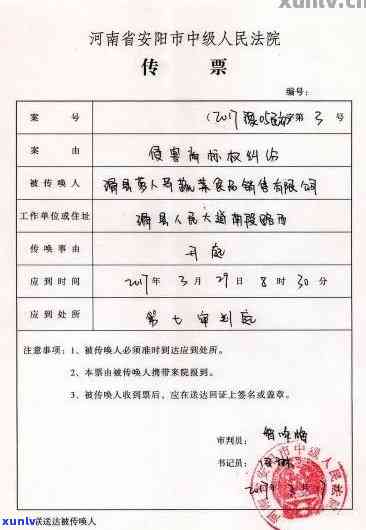 xunlv.com
河南省安阳市中级人民法院
传 票
编号:
案 号 (2017)豫05 第 3 号
案 由 侵害商标权纠纷
被传唤人 滑县 人马蔬菜食品销售有限公司
工作单位或住址 滑县人民大道南段路西
传唤事由 开庭
应到时间 2017年 3 月 29 日 8 时 30 分
应到处所 第七审判庭
注意事项:1、被传唤人必须准时到达应到处所。
2、本票由被传唤人携带来院报到。
3、被传唤人收到票后,应在送达回证上签名或盖章。
审判员:
书记员:
2017年 3 月
河南省安阳市中级人民法院
联送达被传唤人
xunlv